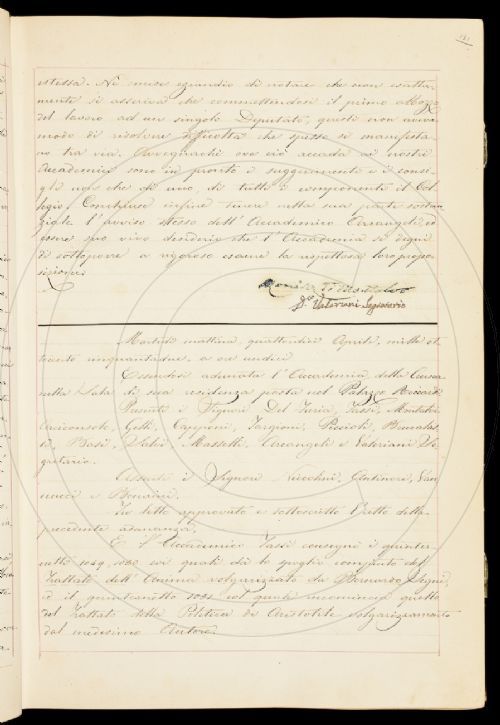 181
stessa. Nè omise eziandio di notare che non esatta-
mente si asseriva che commettendosi il primo abbozzo
del lavoro ad un singolo Deputato, questi non aveva
modo di risolvere difficoltà che spesso si manifesta
no tra via. Avvegnachè ove ciò accada ai nostri
Accademici sono in pronto i suggerimenti e i consi-
gli non che di uno, di tutti i componenti il Col-
legio. Concluse infine tenere nella sua parte sostan
ziale l'avviso stesso dell'Accademico Arcangeli ed
essere suo vivo desiderio che l'Accademia si degni
di sottoporre a rigoroso esame la rispettiva loro propo-
sizione.
D. Valeriani Segretario
Martedì mattina, quattordici Aprile, mille ot-
tocento cinquantadue, a ore undici.
Essendosi adunata l'Accademia della Crusca
nella Sala di sua residenza posta nel Palazzo Riccardi
Presenti i Signori Del Furia, Tassi, Montalvi
Arciconsolo, Gelli, Capponi, Targioni, Puccioti, Brunacci,
Basi, Salvi, Masselli, Arcangeli e Valeriani Se
gretario.
Assenti i Signori Niccolini, Van
nucci e Bencini.
Fu letto approvato e sottoscritto l'Atto della
precedente adunanza.
E l'Accademico Tassi consegnò i quinter-
netti 1029, 1030 coi quali dà lo spoglio compiuto del
Trattato dell'Anima volgarizzato da Bernardo Segni,
ed il quinternetto 1031 col quale incomincia quello
del Trattato della Politica di Aristotile volgarizzamento
del medesimo Autore.